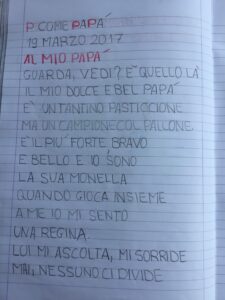 P COME PAPÀ
19 MARZO 2017
AL MIO PAPÀ
GUARDA, VEDI? È QUELLO LÀ
IL MIO DOLCE E BEL PAPÀ
È UN TANTINO PASTICCIONE
MA UN CAMPIONE COL PALLONE.
È IL PIÙ FORTE BRAVO
E BELLO E IO SONO
LA SUA MONELLA
QUANDO GIOCA INSIEME
A ME IO MI SENTO
UNA REGINA.
LUI MI ASCOLTA, MI SORRIDE
MAI, NESSUNO CI DIVIDE